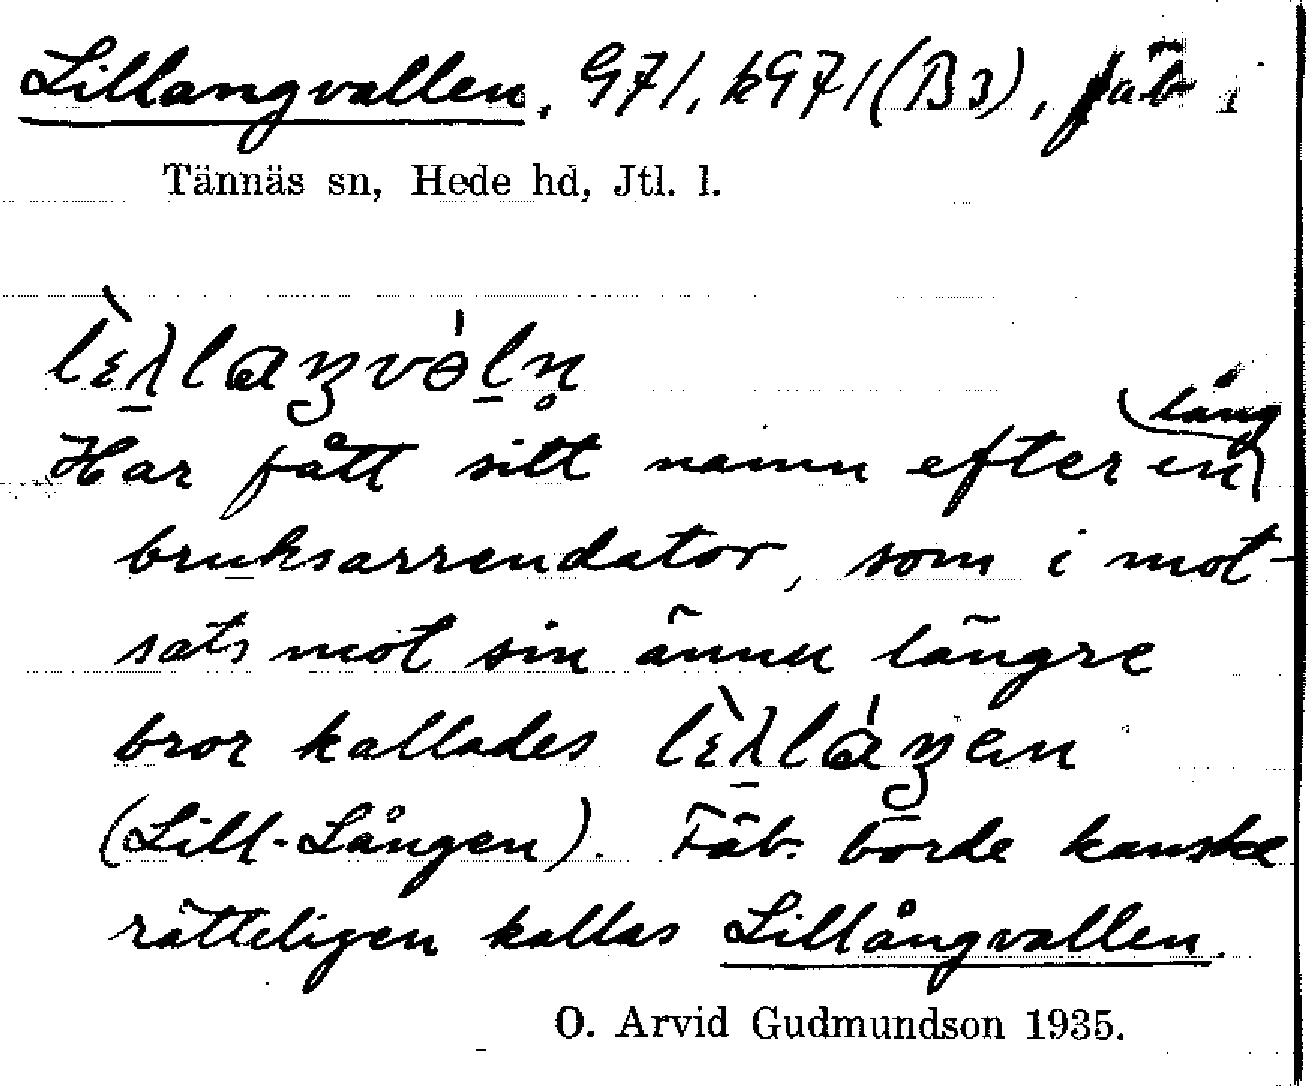 Lillangvallen, G71, kG71 (B3), fäb i
Tännäs sn, Hede hd, Jtl. l.
Har fått sitt namn efter en lång
bruksarrendator, som i mot-
sats mot sin ännu längre
bror kallades
(Lill-Lången). Fäb. borde kanske
rätteligen kallas Lillångvallen.
O. Arvid Gudmundson 1935.